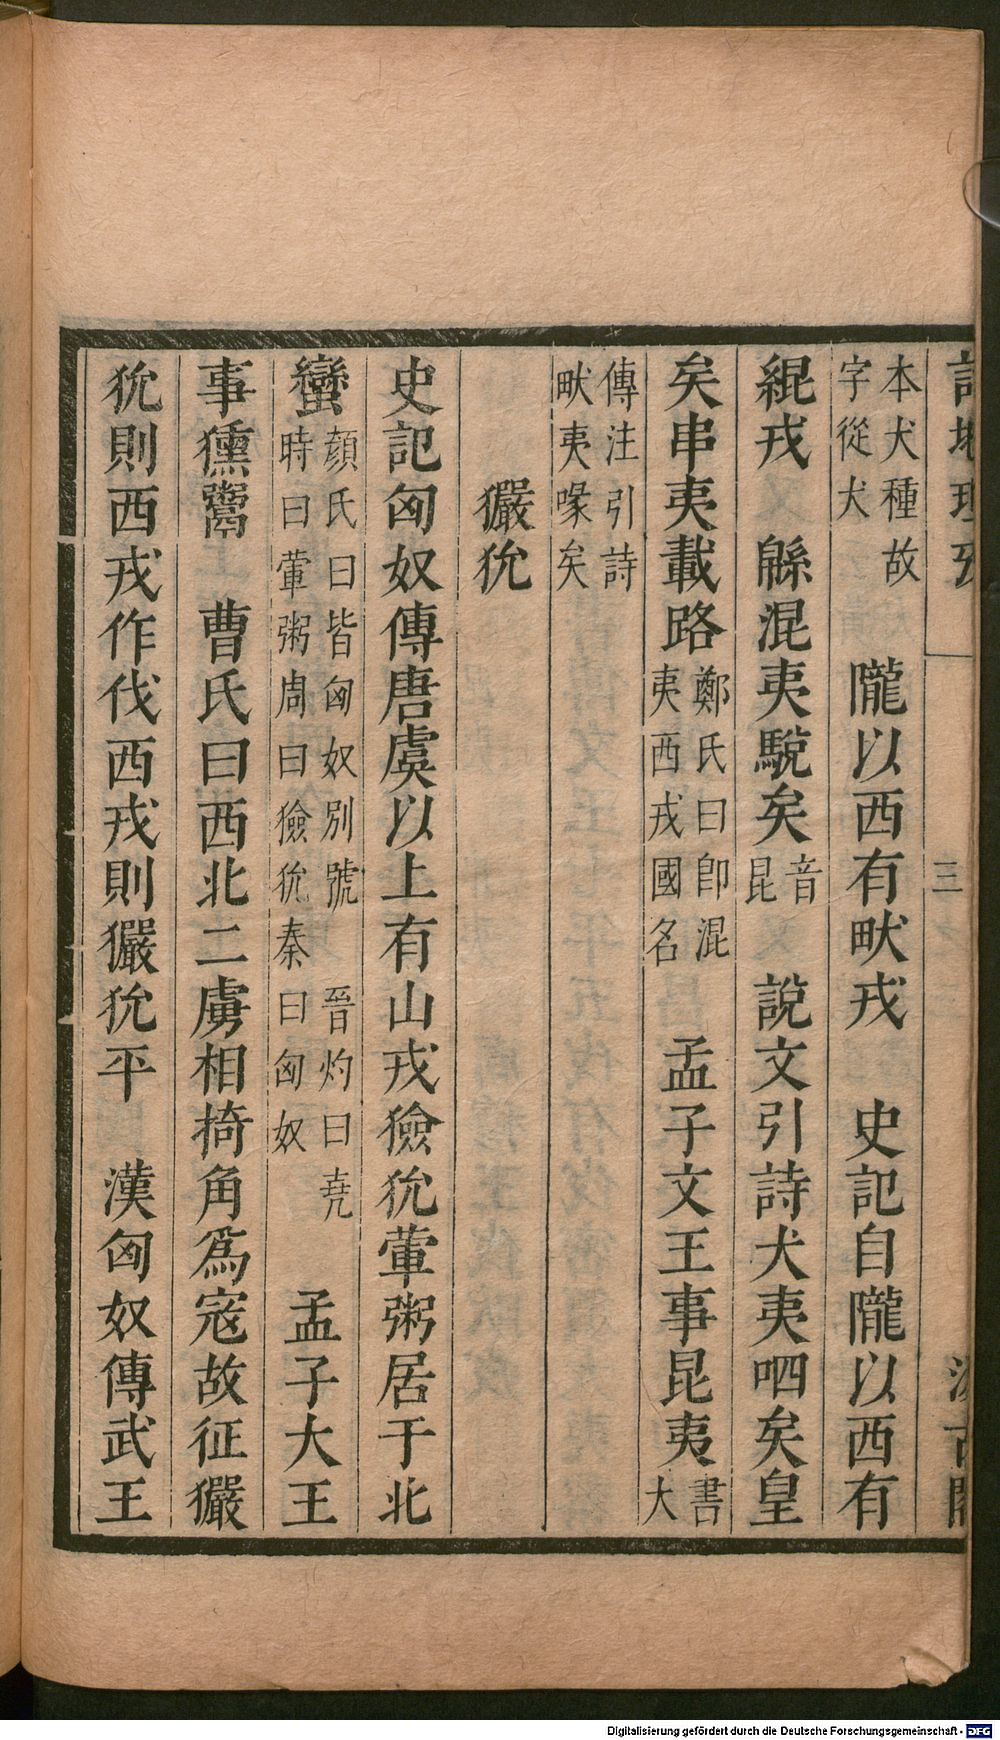 詩地理攷 三 汲古閣
本犬種故字從犬 隴以西有畎戎 史記自隴以西有
緄戎 緜混夷駾矣音昆 說文引詩犬夷呬矣皇
矣串夷載路鄭氏曰卽混夷西戎國名 孟子文王事昆夷書大
傳注引詩畎夷喙矣
玁狁
史記匈奴傳唐虞以上有山戎獫狁葷粥居于北
蠻顏氏曰皆匈奴別號 晉灼曰堯時曰葷粥周曰獫狁秦曰匈奴 孟子大王
事獯鬻 曹氏曰西北二虜相掎角爲寇故征玁
狁則西戎作伐西戎則玁狁平 漢匈奴傳武王
Digitalisierung gefördert durch die Deutsche Forschungsgemeinschaft - DFG